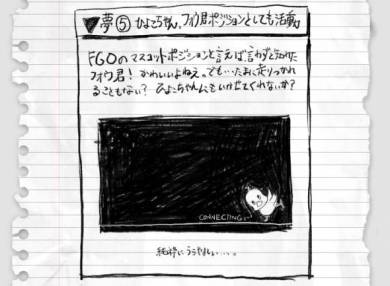 ▼夢⑤ ひよこちゃん、フォウ君ポジションとしても活動
FGOのマスコットポジションと言えば言わずと知れた
フォウ君! かわいいよねえ。でもいたおに走りつかれ
ることもない? ひよこちゃんにもいかせてくれないか?
CONNECTING
純粋にうらやましい…。